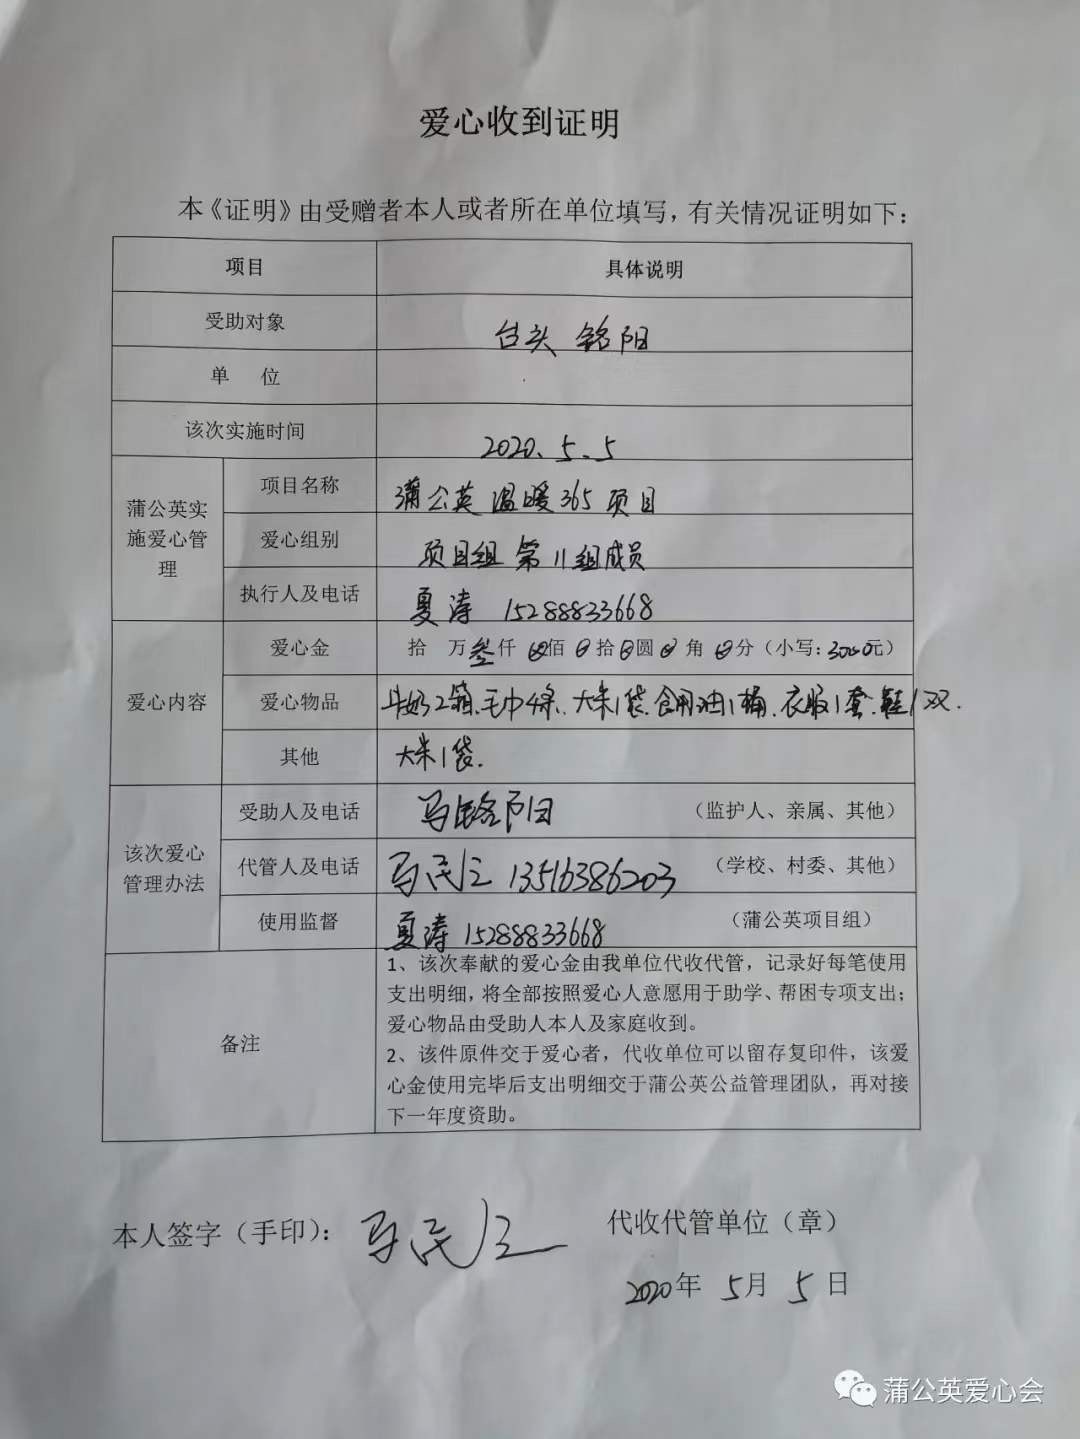 爱心收到证明
本《证明》由受赠者本人或者所在单位填写，有关情况证明如下：
项目 具体说明
受助对象 台头 铭阳
单 位
该次实施时间 2020.5.5
蒲公英实施爱心管理
项目名称 蒲公英温暖365项目
爱心组别 项目组第11组成员
执行人及电话 夏涛 15288833668
爱心内容
爱心金 拾 万叁仟0佰0拾0圆0角0分（小写：3000元）
爱心物品 牛奶2箱、毛巾4条、大米1袋、食用油1桶、衣服1套、鞋1双.
其他 大米1袋.
该次爱心管理办法
受助人及电话 马铭阳 （监护人、亲属、其他）
代管人及电话 马民 13516386203 （学校、村委、其他）
使用监督 夏涛 15288833668 （蒲公英项目组）
备注
1、该次奉献的爱心金由我单位代收代管，记录好每笔使用
支出明细，将全部按照爱心人意愿用于助学、帮困专项支出；
爱心物品由受助人本人及家庭收到。
2、该件原件交于爱心者，代收单位可以留存复印件，该爱
心金使用完毕后支出明细交于蒲公英公益管理团队，再对接
下一年度资助。
本人签字（手印）： 马民
代收代管单位（章）
2020年 5月 5日
蒲公英爱心会